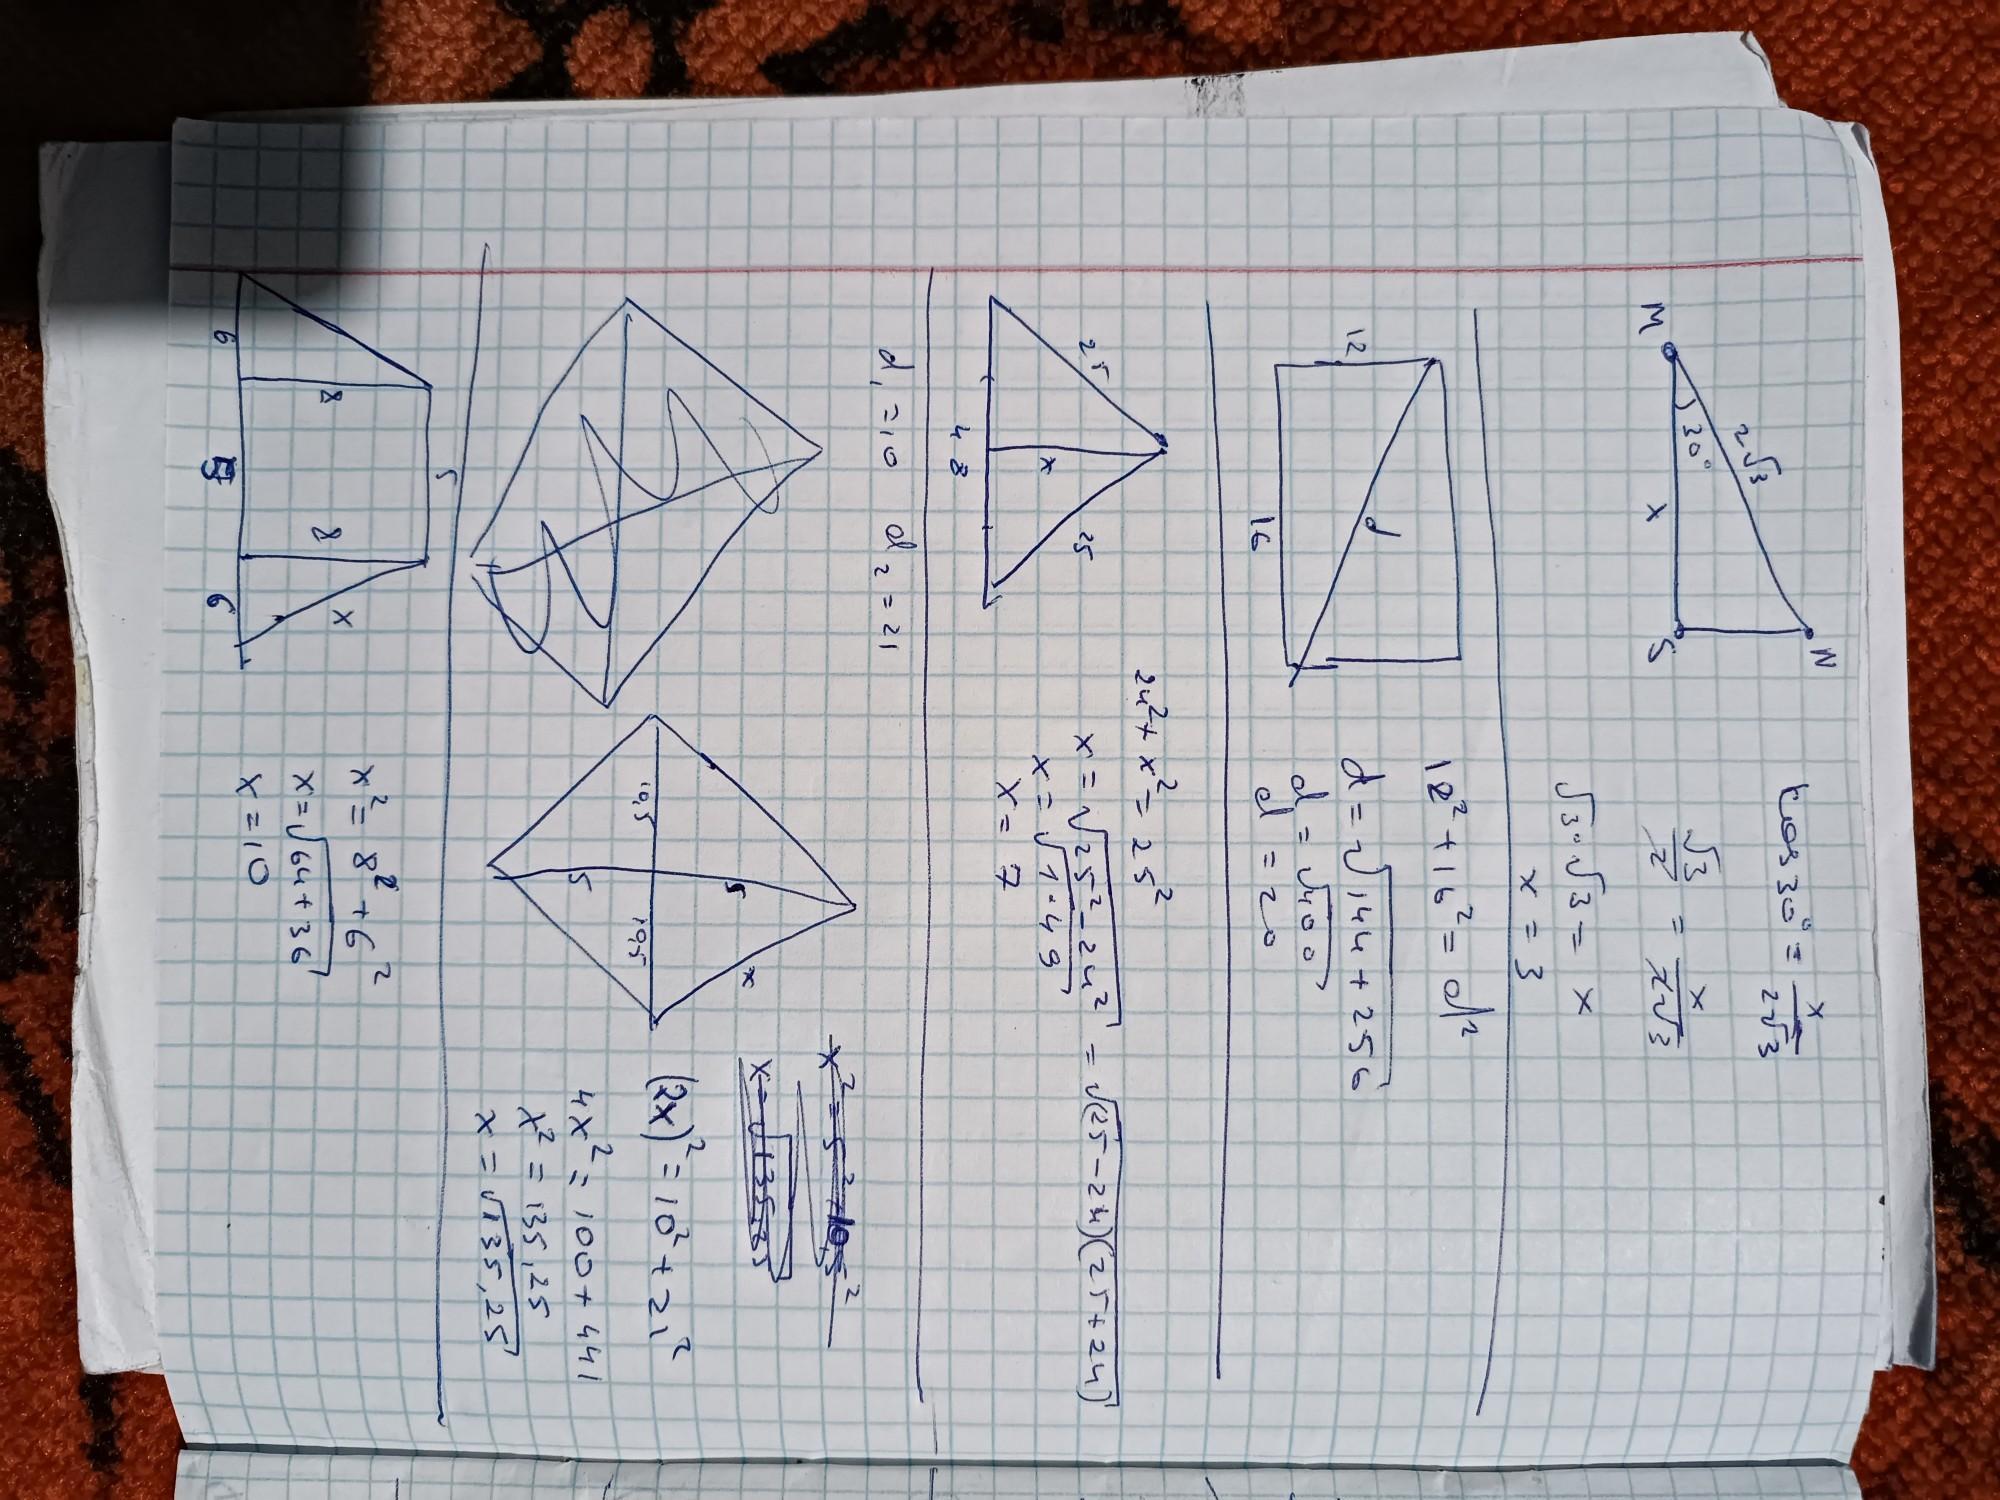 M
N
S
30°
2√3
x
cos30° = x/2√3
√3/2 = x/2√3
√3·√3 = x
x = 3
12
d
16
12² + 16² = d²
d = √144 + 256
d = √400
d = 20
25
25
x
48
24² + x² = 25²
x = √25² - 24² = √(25-24)(25+24)
x = √1·49
x = 7
d₁ = 10 d₂ = 21
10,5
10,5
5
5
x
(2x)² = 10² + 21²
4x² = 100 + 441
x² = 135,25
x = √135,25
5
8
8
x
6
5
6
x² = 8² + 6²
x = √64+36
x = 10